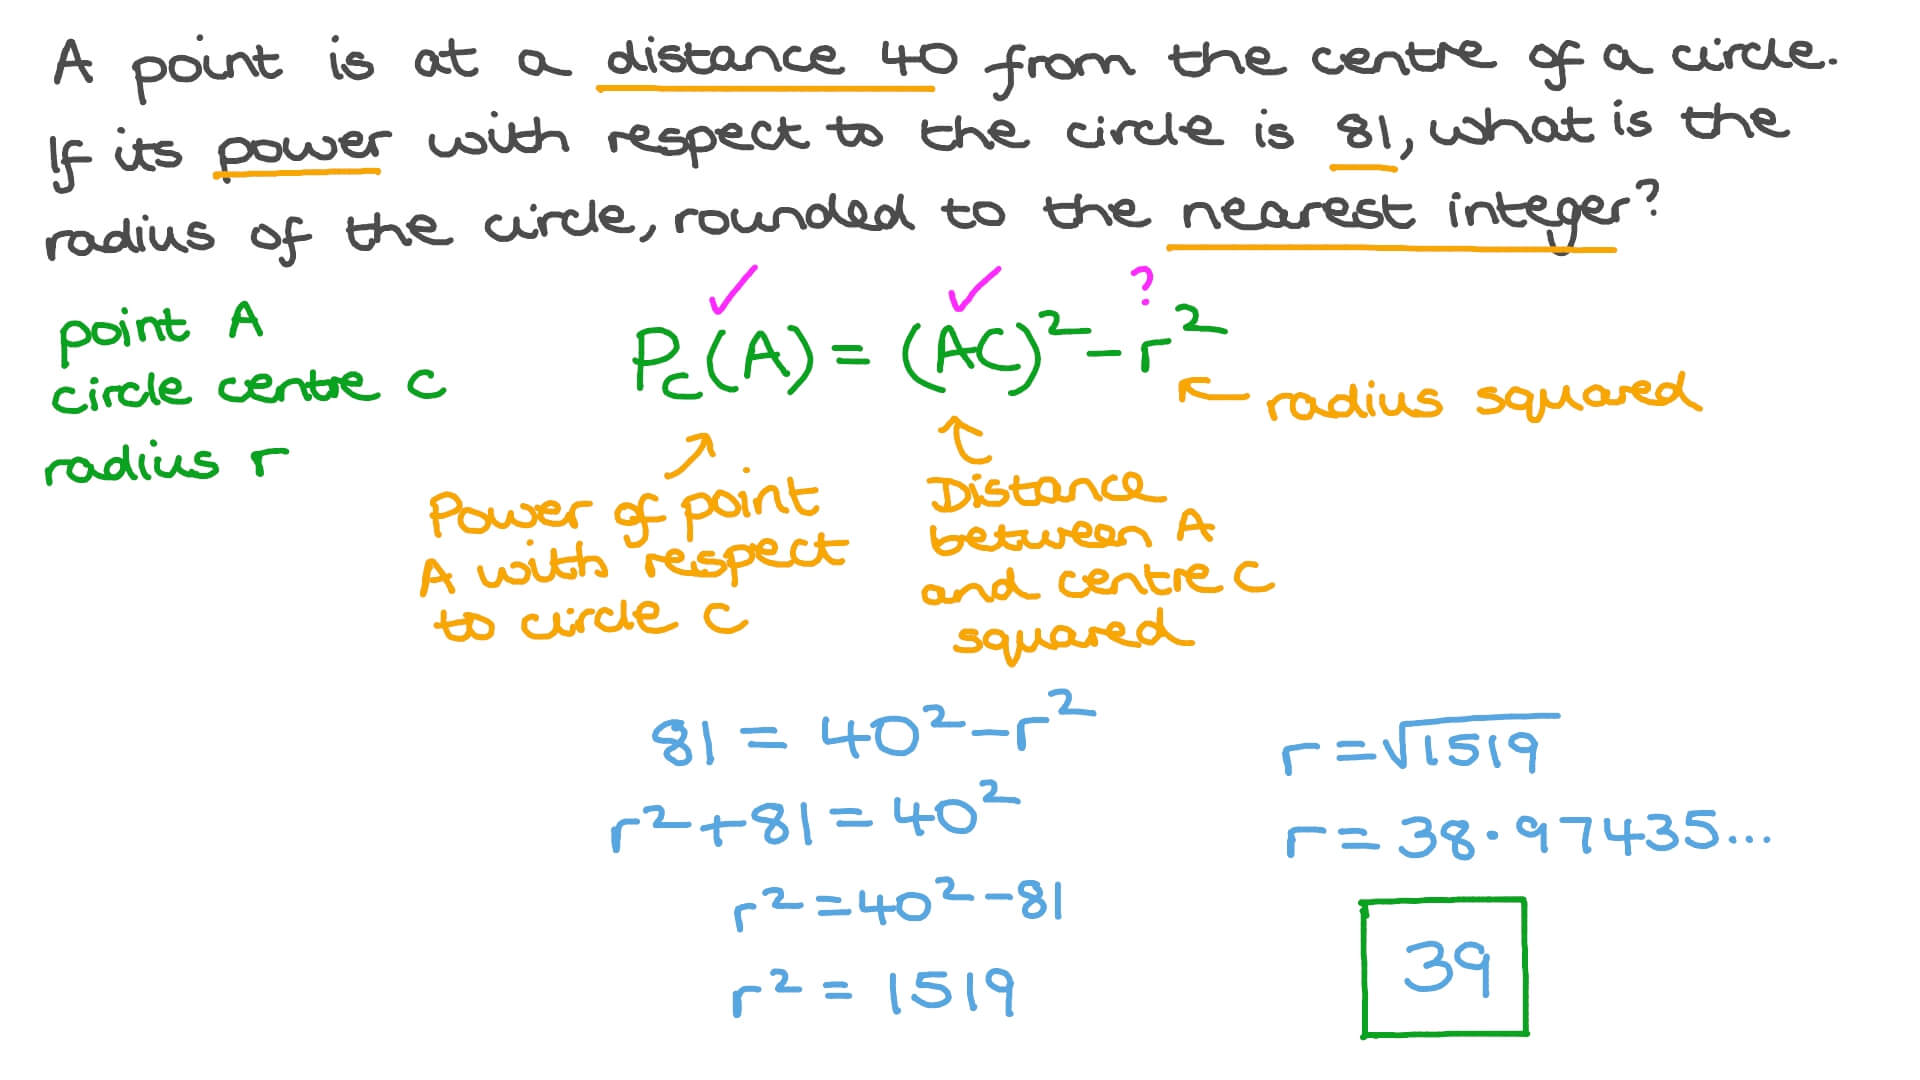 A point is at a distance 40 from the centre of a circle.
If its power with respect to the circle is 81, what is the
radius of the circle, rounded to the nearest integer?
point A
circle centre C
radius r
✓ ✓ ?
P_C(A) = (AC)² – r²
← radius squared
Power of point
A with respect
to circle C
Distance
between A
and centre C
squared
81 = 40² – r²
r² + 81 = 40²
r² = 40² – 81
r² = 1519
r = √1519
r = 38.97435...
39